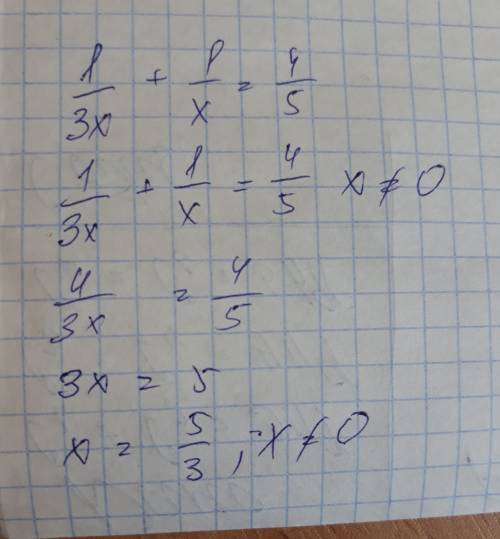 1/3x + 1/x = 4/5
1/3x + 1/x = 4/5 x ≠ 0
4/3x = 4/5
3x = 5
x = 5/3 , x ≠ 0